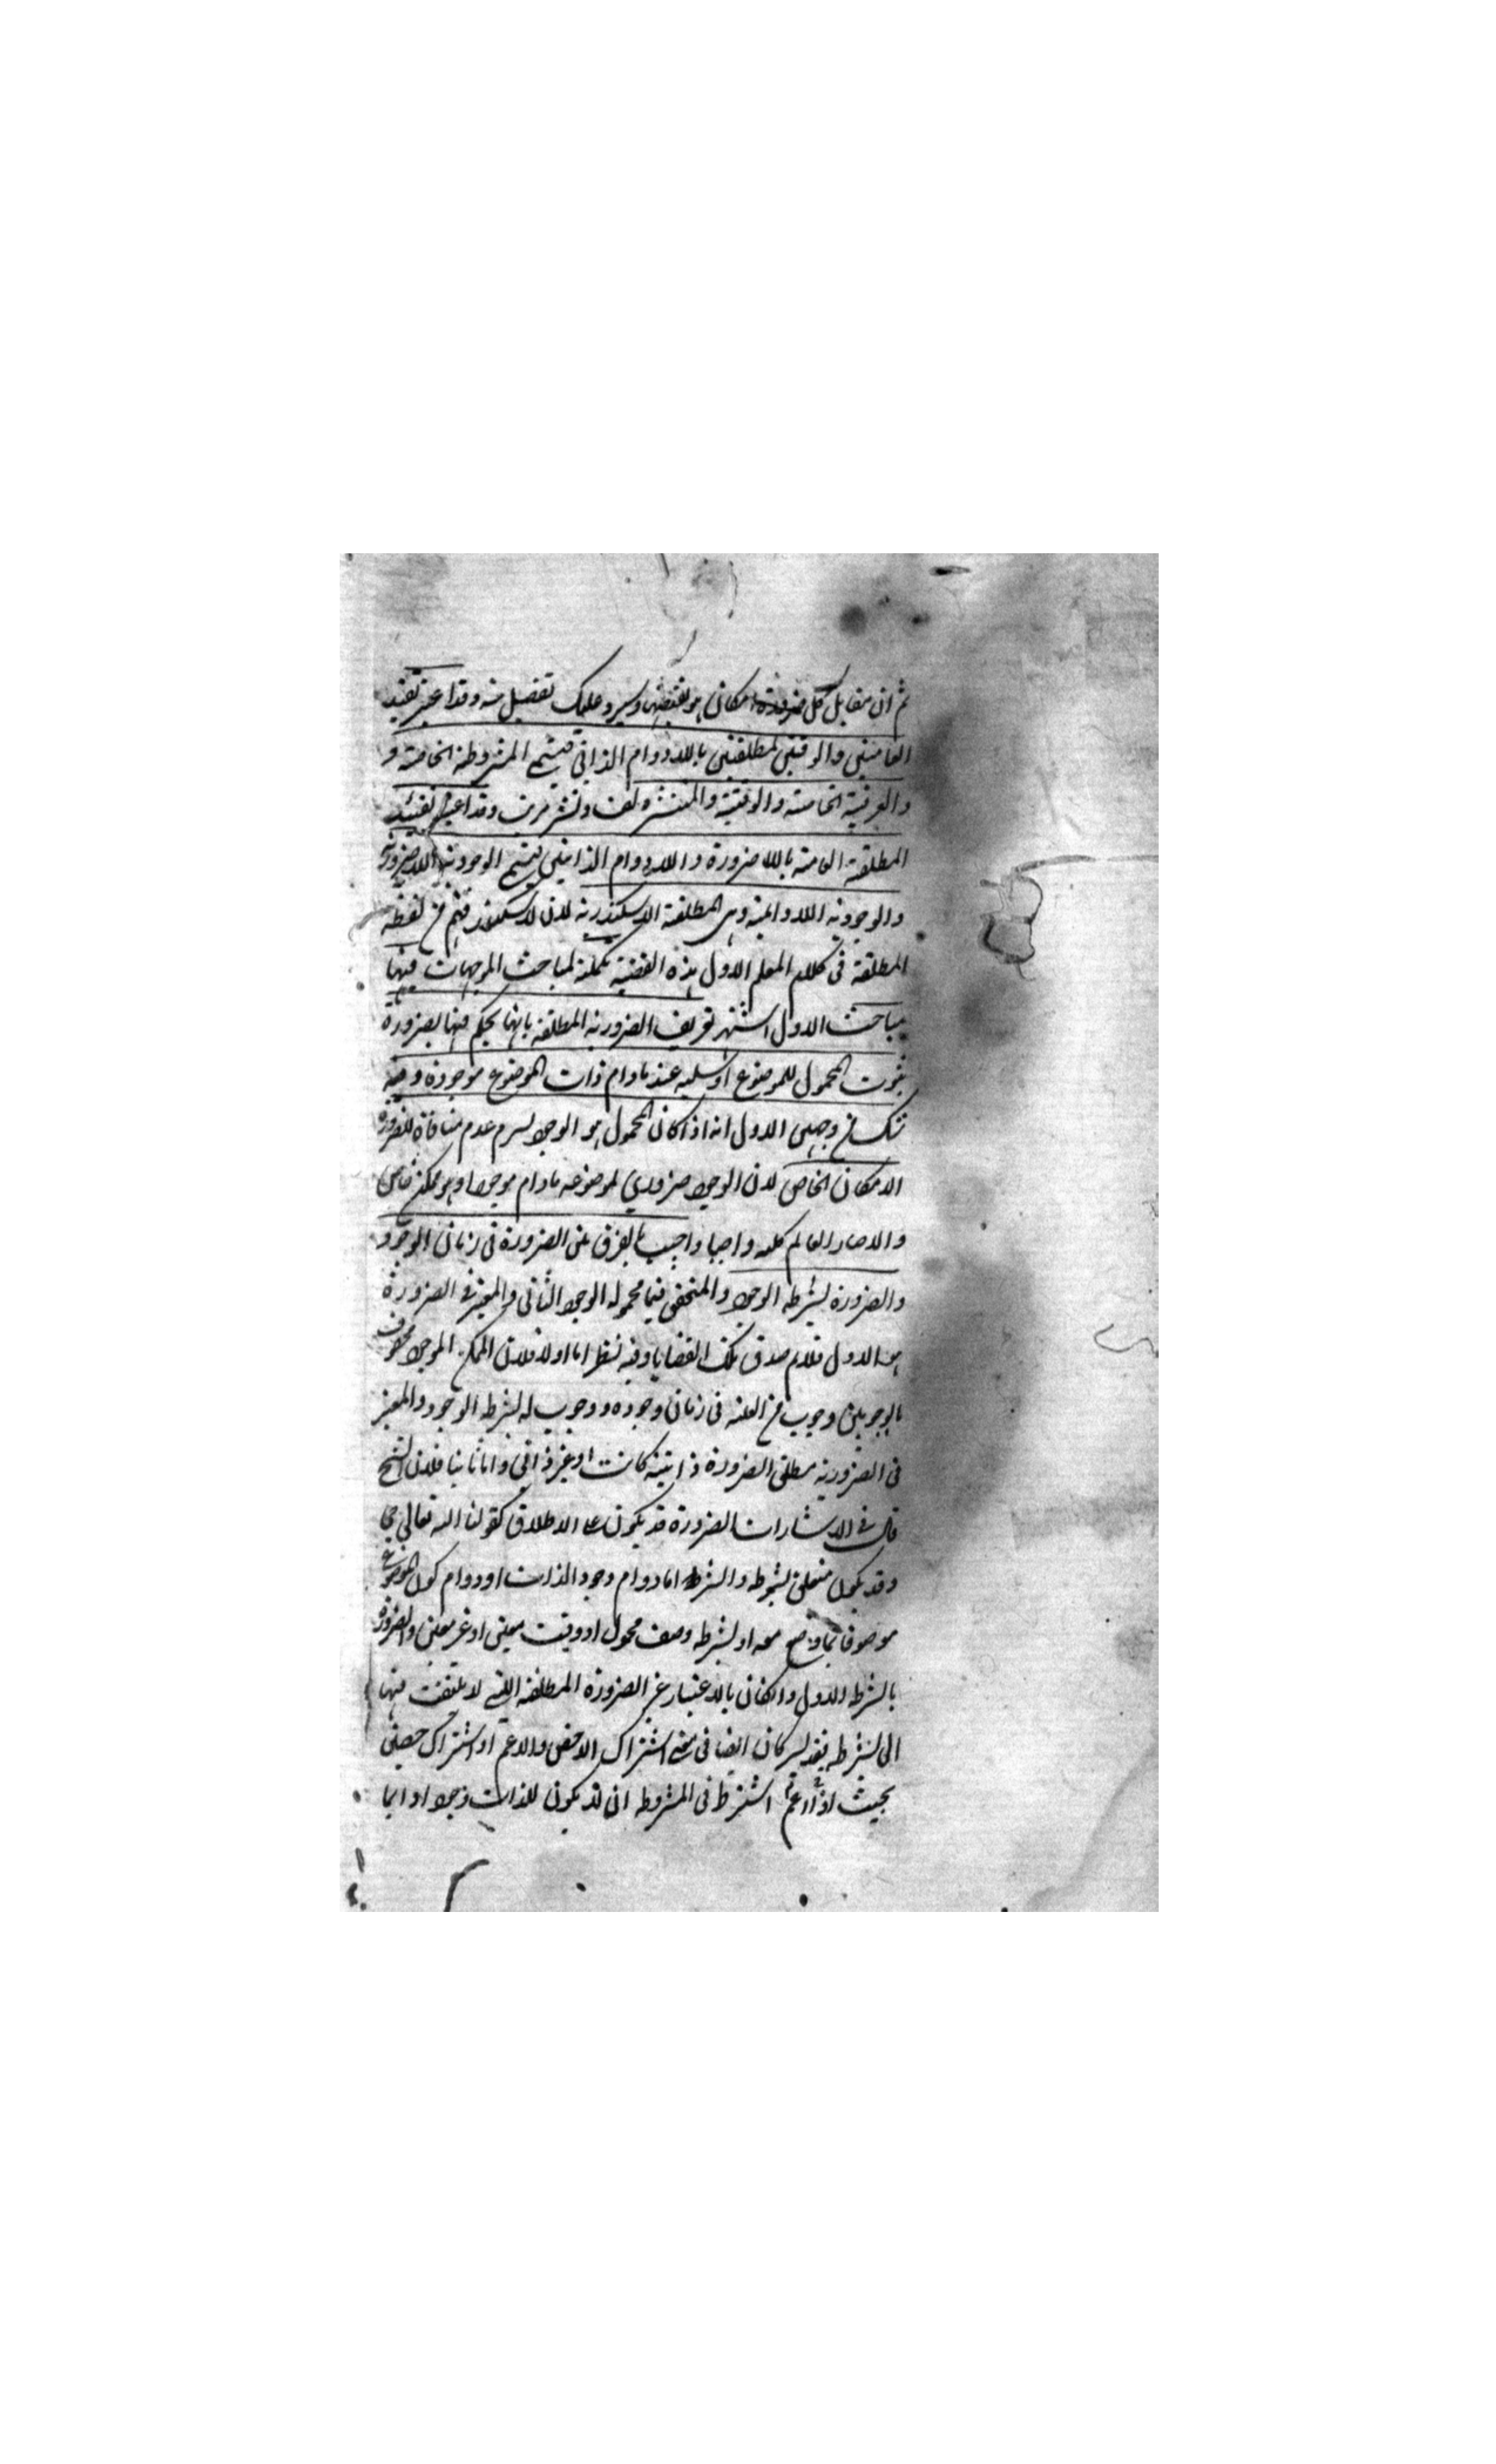 ثم ان مقابل كل ضرورة امكان هو نقيضها وسيرد عليك تفصيل منه وقد اعتبر تقييد
العامتين والوقتيتين المطلقتين باللادوام الذاتي فيسمى المشروطة الخاصة و
والعرفية الخاصة والوقتية والمنتشرة لف ونشر مرتب وقد اعتبر تقييد
المطلقة العامة باللاضرورة واللادوام الذاتيين فيسمى الوجودية اللاضرورية
والوجودية اللادائمة وهى المطلقة الاسكندرية لان الاسكندر فهم من لفظة
المطلقة في كلام المعلم الاول هذه القضية تكملة لمباحث الموجهات فيها
مباحث الاول اشتهر تعريف الضرورية المطلقة بانها يحكم فيها بضرورة
ثبوت المحمول للموضوع او سلبه عنه ما دام ذات الموضوع موجودة وفيه
شك من وجهين الاول انه اذا كان المحمول هو الوجود لزم عدم منافاة للضرورة
الامكان الخاص لان الوجود ضروري لموضوعه ما دام موجودا وهو ممكن خاص
والا صار العالم كله واجبا واجيب بالفرق بين الضرورة في زمان الوجود
والضرورة بشرط الوجود والمتحقق فيما محموله الوجود الثاني والمعتبر في الضرورة
هو الاول فلا يم صدق تلك القضايا وفيه نظر اما اولا فلان الممكن الموجود محفوف
بالوجوبين وجوب من العلة في زمان وجوده ووجوب له بشرط الوجود والمعتبر
في الضرورية مطلق الضرورة ذاتية كانت او غير ذاتي واما ثانيا فلان الشيخ
قال في الاشارات الضرورة قد يكون على الاطلاق كقولنا الله تعالى حي
وقد يكون متعلق بشرط والشرط اما دوام وجود الذات او دوام كون الموضوع
موصوفا بما وضع معه او بشرط وصف محمول او وقت معين او غير معين والضرورة
بالشرط الاول وان كان بالاعتبار غير الضرورة المطلقة التي لا يلتفت فيها
الى شرط فقد كان ايضا في معنى اشتراك الاخص والاعم او اشتراك خصين
بحيث اذا اشترط في المشروطة ان لا يكون للذات وجود دائما